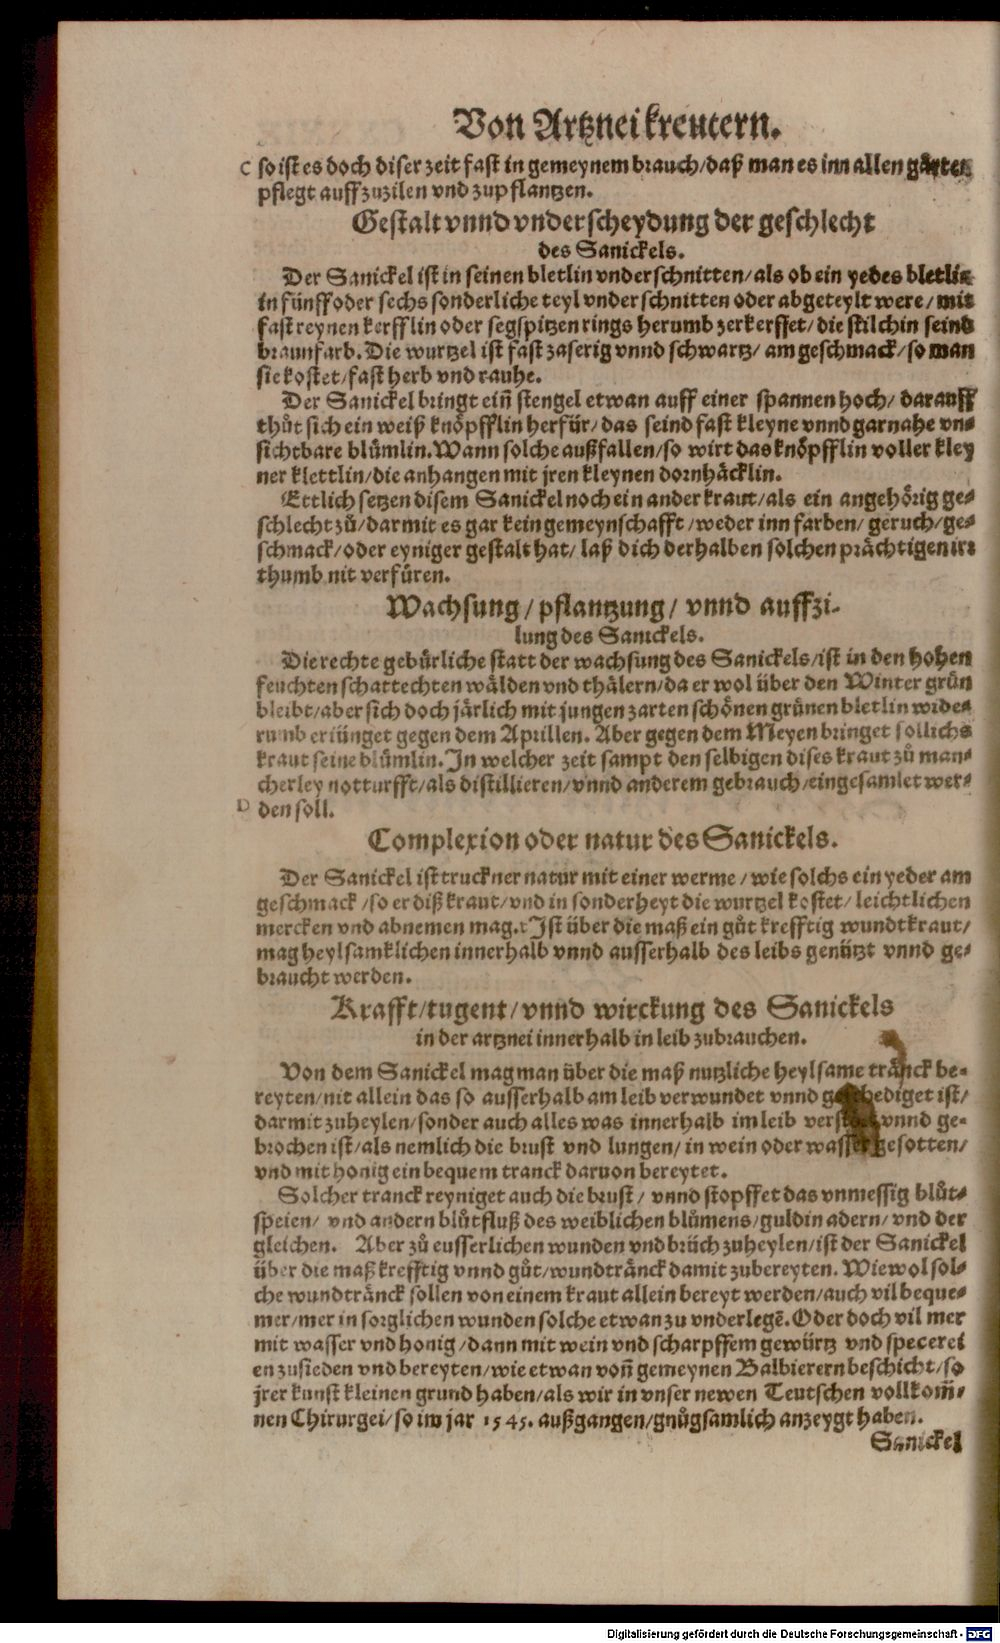 Von Artzneikreutern.
C so ist es doch diser zeit fast in gemeynem brauch/daß man es inn allen gärten
pflegt auffzuzilen vnd zupflantzen.
Gestalt vnnd vnderscheydung der geschlecht
des Sanickels.
Der Sanickel ist in seinen bletlin vnderschnitten/als ob ein yedes bletlin
in fünff oder sechs sonderliche teyl vnderschnitten oder abgeteylt were/mit
fast reynen kerfflin oder segspitzen rings herumb zerkerffet/die stilchin seind
braunfarb. Die wurtzel ist fast zaserig vnnd schwartz/am geschmack/so man
sie kostet/fast herb vnd rauhe.
Der Sanickel bringt ein̄ stengel etwan auff einer spannen hoch/darauff
thůt sich ein weiß knöpfflin herfür/das seind fast kleyne vnnd gar nahe vn⸗
sichtbare blůmlin. Wann solche außfallen/so wirt das knöpfflin voller kley
ner klettlin/die anhangen mit jren kleynen dornhäcklin.
Ettlich setzen disem Sanickel noch ein ander kraut/als ein angehörig ge⸗
schlecht zů/darmit es gar kein gemeynschafft/weder inn farben/geruch/ge⸗
schmack/oder eyniger gestalt hat/laß dich derhalben solchen prächtigen irr
thumb nit verfüren.
Wachsung/pflantzung/vnnd auffzi⸗
lung des Sanickels.
Die rechte gebürliche statt der wachsung des Sanickels/ist in den hohen
feuchten schattechten wälden vnd thälern/da er wol über den Winter grün
bleibt/aber sich doch järlich mit jungen zarten schönen grünen bletlin wider
rumb erjünget gegen dem Aprillen. Aber gegen dem Meyen bringet sollichs
kraut seine blůmlin. In welcher zeit sampt den selbigen dises kraut zů man⸗
cherley notturfft/als distillieren/vnnd anderem gebrauch/eingesamlet wer⸗
D den soll.
Complexion oder natur des Sanickels.
Der Sanickel ist truckner natur mit einer werme/wie solchs ein yeder am
geschmack/so er diß kraut/vnd in sonderheyt die wurtzel kostet/leichtlichen
mercken vnd abnemen mag. Ist über die maß ein gůt krefftig wundtkraut/
mag heylsamklichen innerhalb vnnd ausserhalb des leibs genützt vnnd ge⸗
braucht werden.
Krafft/tugent/vnnd wirckung des Sanickels
in der artznei innerhalb in leib zubrauchen.
Von dem Sanickel mag man über die maß nutzliche heylsame tränck be⸗
reyten/nit allein das so ausserhalb am leib verwundet vnnd geschediget ist/
darmit zuheylen/sonder auch alles was innerhalb im leib vnnd ge⸗
brochen ist/als nemlich die brust vnd lungen/in wein oder wasser gesotten/
vnd mit honig ein bequem tranck daruon bereytet.
Solcher tranck reyniget auch die brust/vnnd stopffet das vnmessig blůt⸗
speien/vnd andern blůtfluß des weiblichen blůmens/guldin adern/vnd der
gleichen. Aber zů eusserlichen wunden vnd brüch zuheylen/ist der Sanickel
über die maß krefftig vnnd gůt/wundtränck damit zubereyten. Wiewol sol⸗
che wundtränck sollen von einem kraut allein bereyt werden/auch vil beque⸗
mer/mer in sorglichen wunden solche etwan zu vnderlegē. Oder doch vil mer
mit wasser vnd honig/dann mit wein vnd scharpffem gewürtz vnd specerei
en zusieden vnd bereyten/wie etwan von̄ gemeynen Balbierern beschicht/so
jrer kunst kleinen grund haben/als wir in vnser newen Teutschen vollkom̄⸗
nen Chirurgei/so im jar 1545. außgangen/gnůgsamlich anzeygt haben.
Sanickel
Digitalisierung gefördert durch die Deutsche Forschungsgemeinschaft - DFG